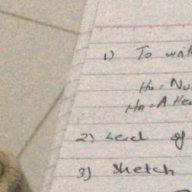 1) To
H₀ = Nu
H₁ = A He
2) Level of
3) Sketch